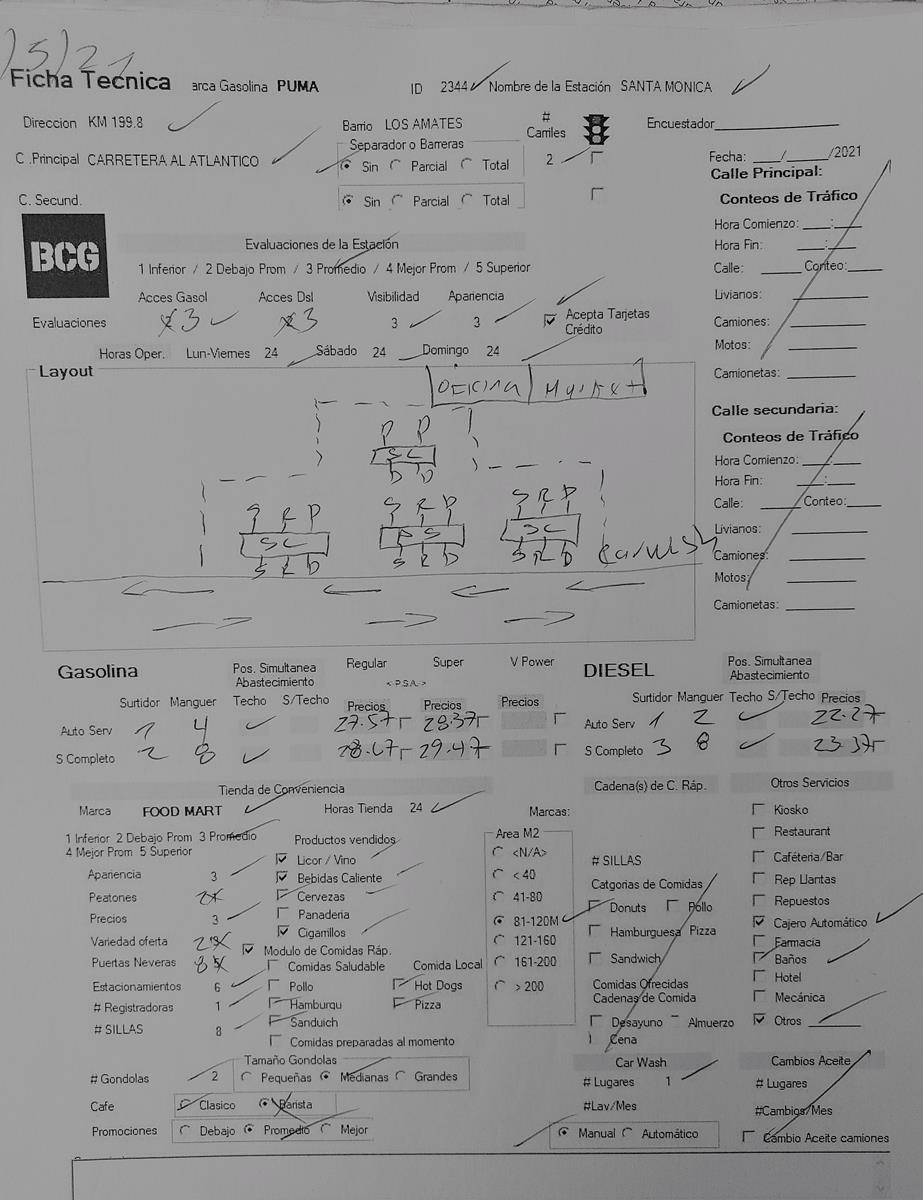 /5/21
Ficha Tecnica arca Gasolina PUMA ID 2344 Nombre de la Estación SANTA MONICA
Direccion KM 199.8 Barrio LOS AMATES # Carriles Encuestador
Separador o Barreras
C .Principal CARRETERA AL ATLANTICO Sin Parcial Total 2 Fecha: ___/_____/2021
Calle Principal:
C. Secund. Sin Parcial Total
Conteos de Tráfico
BCG
Hora Comienzo: ___:___
Evaluaciones de la Estación
Hora Fin: ___:___
1 Inferior / 2 Debajo Prom / 3 Promedio / 4 Mejor Prom / 5 Superior
Calle: _____ Conteo:_____
Acces Gasol Acces Dsl Visibilidad Apariencia
Livianos:
Evaluaciones 3 3 3 3 Acepta Tarjetas Crédito
Camiones:
Motos:
Horas Oper. Lun-Viernes 24 Sábado 24 Domingo 24
Camionetas:
Layout
OFICINA Market
Calle secundaria:
Conteos de Tráfico
P P
SC
D D
Hora Comienzo: ___:___
Hora Fin: ___:___
Calle: _____ Conteo:_____
S R P S R P S R P
SC SC
S R D S R D S R D
Livianos:
Camiones:
Motos:
Camionetas:
Gasolina Pos. Simultanea Abastecimiento Regular Super V Power DIESEL Pos. Simultanea Abastecimiento
< P.S.A. >
Surtidor Manguer Techo S/Techo Precios Precios Precios Surtidor Manguer Techo S/Techo Precios
Auto Serv 1 4 27.57 28.37 Auto Serv 1 2 22.27
S Completo 2 8 28.67 29.47 S Completo 3 8 23.37
Tienda de Conveniencia Cadena(s) de C. Ráp. Otros Servicios
Marca FOOD MART Horas Tienda 24 Marcas: Kiosko
1 Inferior 2 Debajo Prom 3 Promedio
4 Mejor Prom 5 Superior
Productos vendidos Area M2 Restaurant
Licor / Vino <N/A> # SILLAS Caféteria/Bar
Apariencia 3 Bebidas Caliente < 40 Catgorias de Comidas Rep Llantas
Peatones 2 Cervezas 41-80 Donuts Pollo Repuestos
Precios 3 Panaderia 81-120M Hamburguesa Pizza Cajero Automático
Variedad oferta 2 Cigarrillos 121-160 Farmacia
Puertas Neveras 8 Modulo de Comidas Ráp. 161-200 Sandwich Baños
Estacionamientos 6 Comidas Saludable Comida Local > 200 Comidas Ofrecidas Cadenas de Comida Hotel
# Registradoras 1 Pollo Hot Dogs Mecánica
# SILLAS 8 Hamburgu Pizza Desayuno Almuerzo Otros
Sanduich Cena
Comidas preparadas al momento
Tamaño Gondolas Car Wash Cambios Aceite
# Gondolas 2 Pequeñas Medianas Grandes # Lugares 1 # Lugares
Cafe Clasico Barista #Lav/Mes #Cambios/Mes
Promociones Debajo Promedio Mejor Manual Automático Cambio Aceite camiones